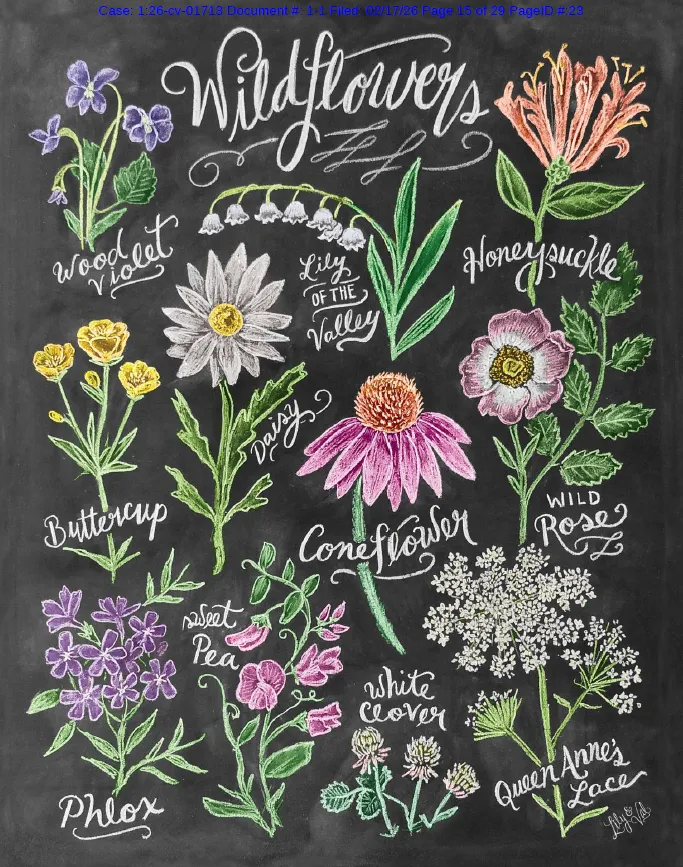 Case: 1:26-cv-01713 Document #: 1-1 Filed: 02/17/26 Page 15 of 29 PageID #:23
Wildflowers
Wood
Violet
Lily
OF THE
Valley
Honeysuckle
Daisy
Buttercup
Coneflower
WILD
Rose
Sweet
Pea
White
Clover
Phlox
Queen Anne's
Lace
Lily & Val